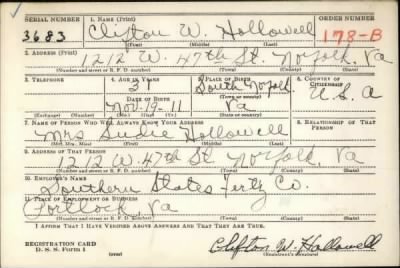 SERIAL NUMBER 1. NAME (Print) ORDER NUMBER
3683 Clifton W. Hollowell 178-B
(First) (Middle) (Last)
2. ADDRESS (Print)
1212 W. 47th St. Norfolk, Va
(Number and street or R. F. D. number) (Town) (County) (State)
3. TELEPHONE 4. AGE IN YEARS 5. PLACE OF BIRTH 6. COUNTRY OF CITIZENSHIP
South Norfolk
(Town or county)
DATE OF BIRTH
Nov-19-11 Va U. S. A
(Exchange) (Number) (Mo.) (Day) (Yr.) (State or country)
7. NAME OF PERSON WHO WILL ALWAYS KNOW YOUR ADDRESS 8. RELATIONSHIP OF THAT PERSON
Mrs Hollowell
(Mr., Mrs., Miss) (First) (Middle) (Last)
9. ADDRESS OF THAT PERSON
1212 W. 47th St. Norfolk, Va
(Number and street or R. F. D. number) (Town) (County) (State)
10. EMPLOYER'S NAME
Southern States Fertz Co.
11. PLACE OF EMPLOYMENT OR BUSINESS
Portlock, Va
(Number and street or R. F. D. number) (Town) (County) (State)
I AFFIRM THAT I HAVE VERIFIED ABOVE ANSWERS AND THAT THEY ARE TRUE.
REGISTRATION CARD
D. S. S. Form 1 (over) Clifton W. Hollowell
(Registrant's signature)